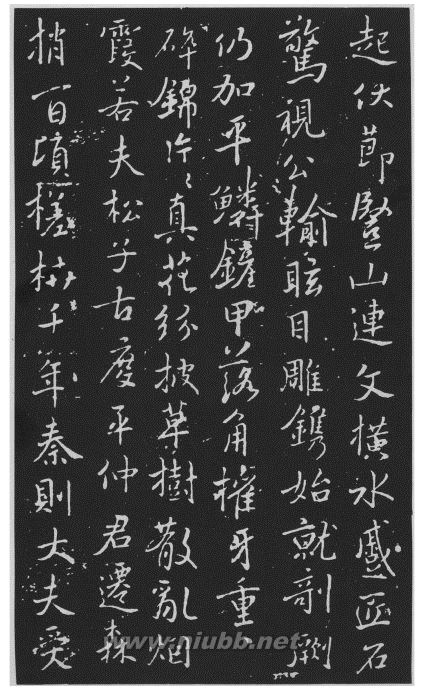 起伏節竪山連文橫水蹙匠石
驚視公輸眩目雕鐫始就剞劂
仍加平鱗鏟甲落角摧牙重〻
碎錦片〻真花紛披草樹散亂烟
霞若夫松子古度平仲君遷森
梢百頃槎枿千年秦則大夫受
www.niubb.net